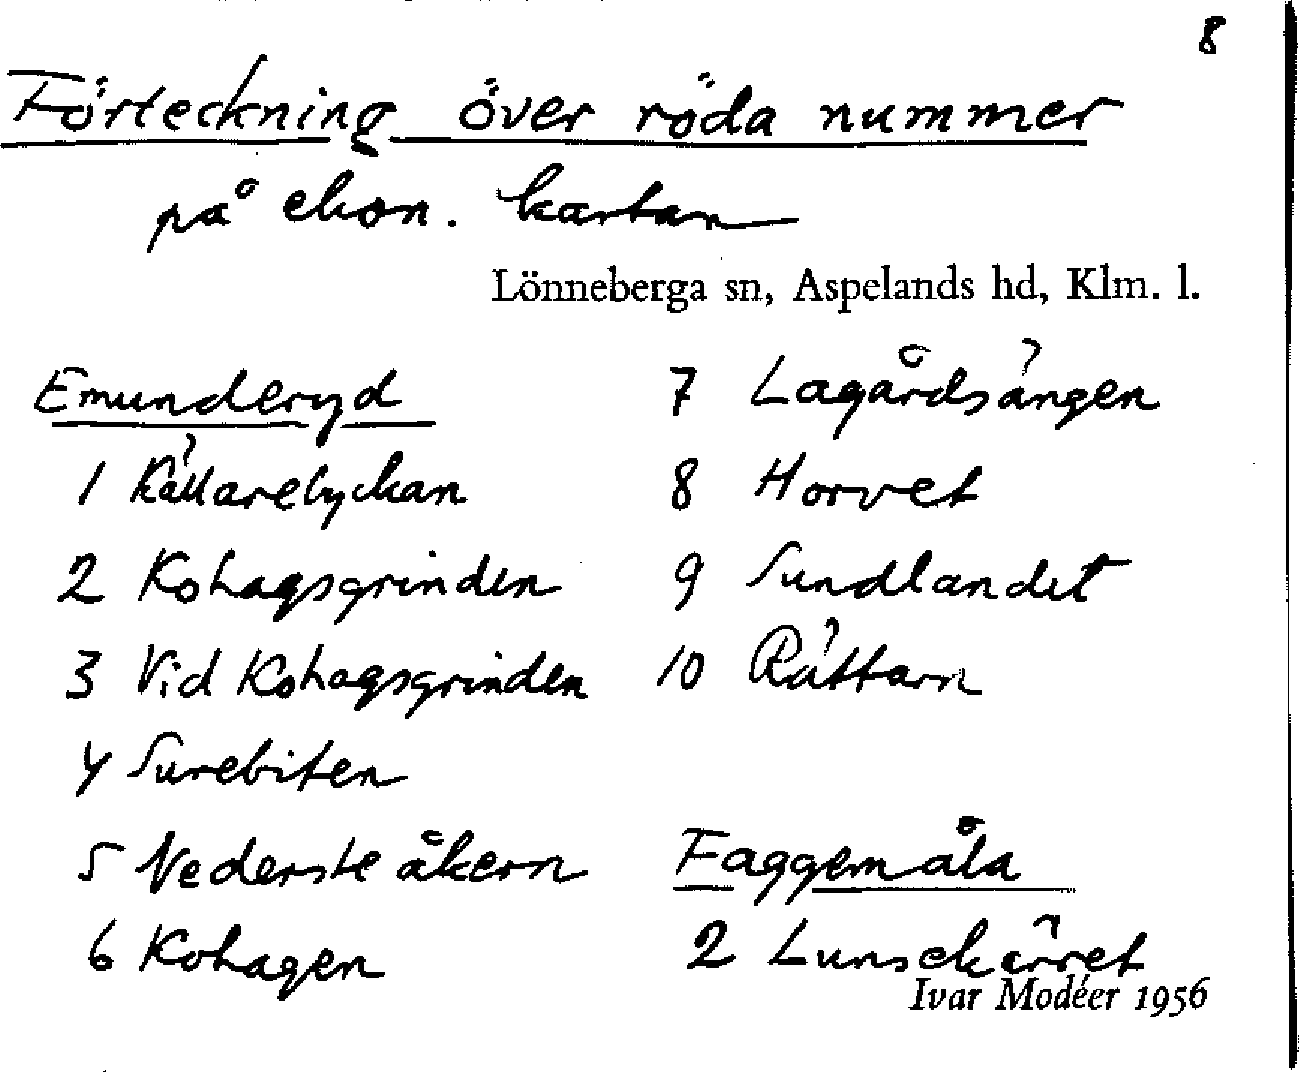 8
Förteckning över röda nummer
på ekon. kartan
Lönneberga sn, Aspelands hd, Klm. l.
Emunderyd
1 Källarelyckan
2 Kohagsgrinden
3 Vid Kohagsgrinden
4 Surebiten
5 Nederste åkern
6 Kohagen
7 Lagårdsängen
8 Horvet
9 Sundlandet
10 Råttarn
Faggemåla
2 Lunsekärret
Ivar Modéer 1956